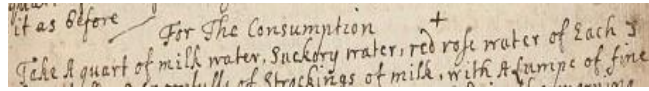 it as before
For The Consumption
Take A quart of milk water, Suckory water, red rose water of Each
of Strockings of milk, with A Lumpe of fine
morning